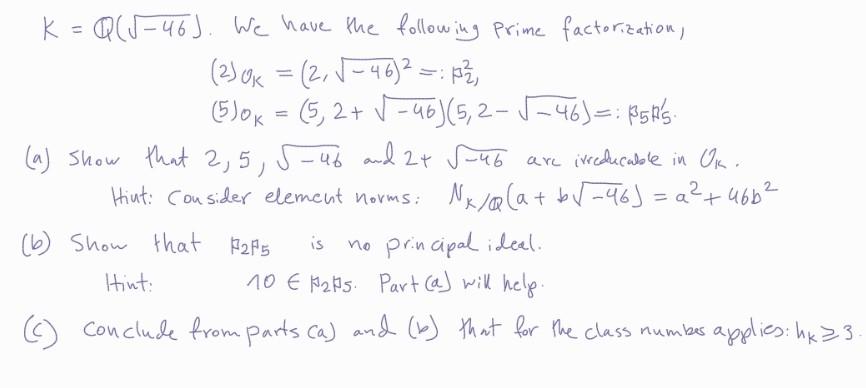 K = ℚ(√-46). We have the following prime factorization,
(2)O_K = (2, √-46)² =: 𝔭₂²,
(5)O_K = (5, 2+√-46)(5, 2-√-46) =: 𝔭₅𝔭₅'.
(a) Show that 2, 5, √-46 and 2+√-46 are irreducable in O_K.
Hint: Consider element norms: N_{K/ℚ}(a+b√-46) = a²+46b²
(b) Show that 𝔭₂𝔭₅ is no principal ideal.
Hint: 10 ∈ 𝔭₂𝔭₅. Part (a) will help.
(c) Conclude from parts (a) and (b) that for the class number applies: h_K ⩾ 3.